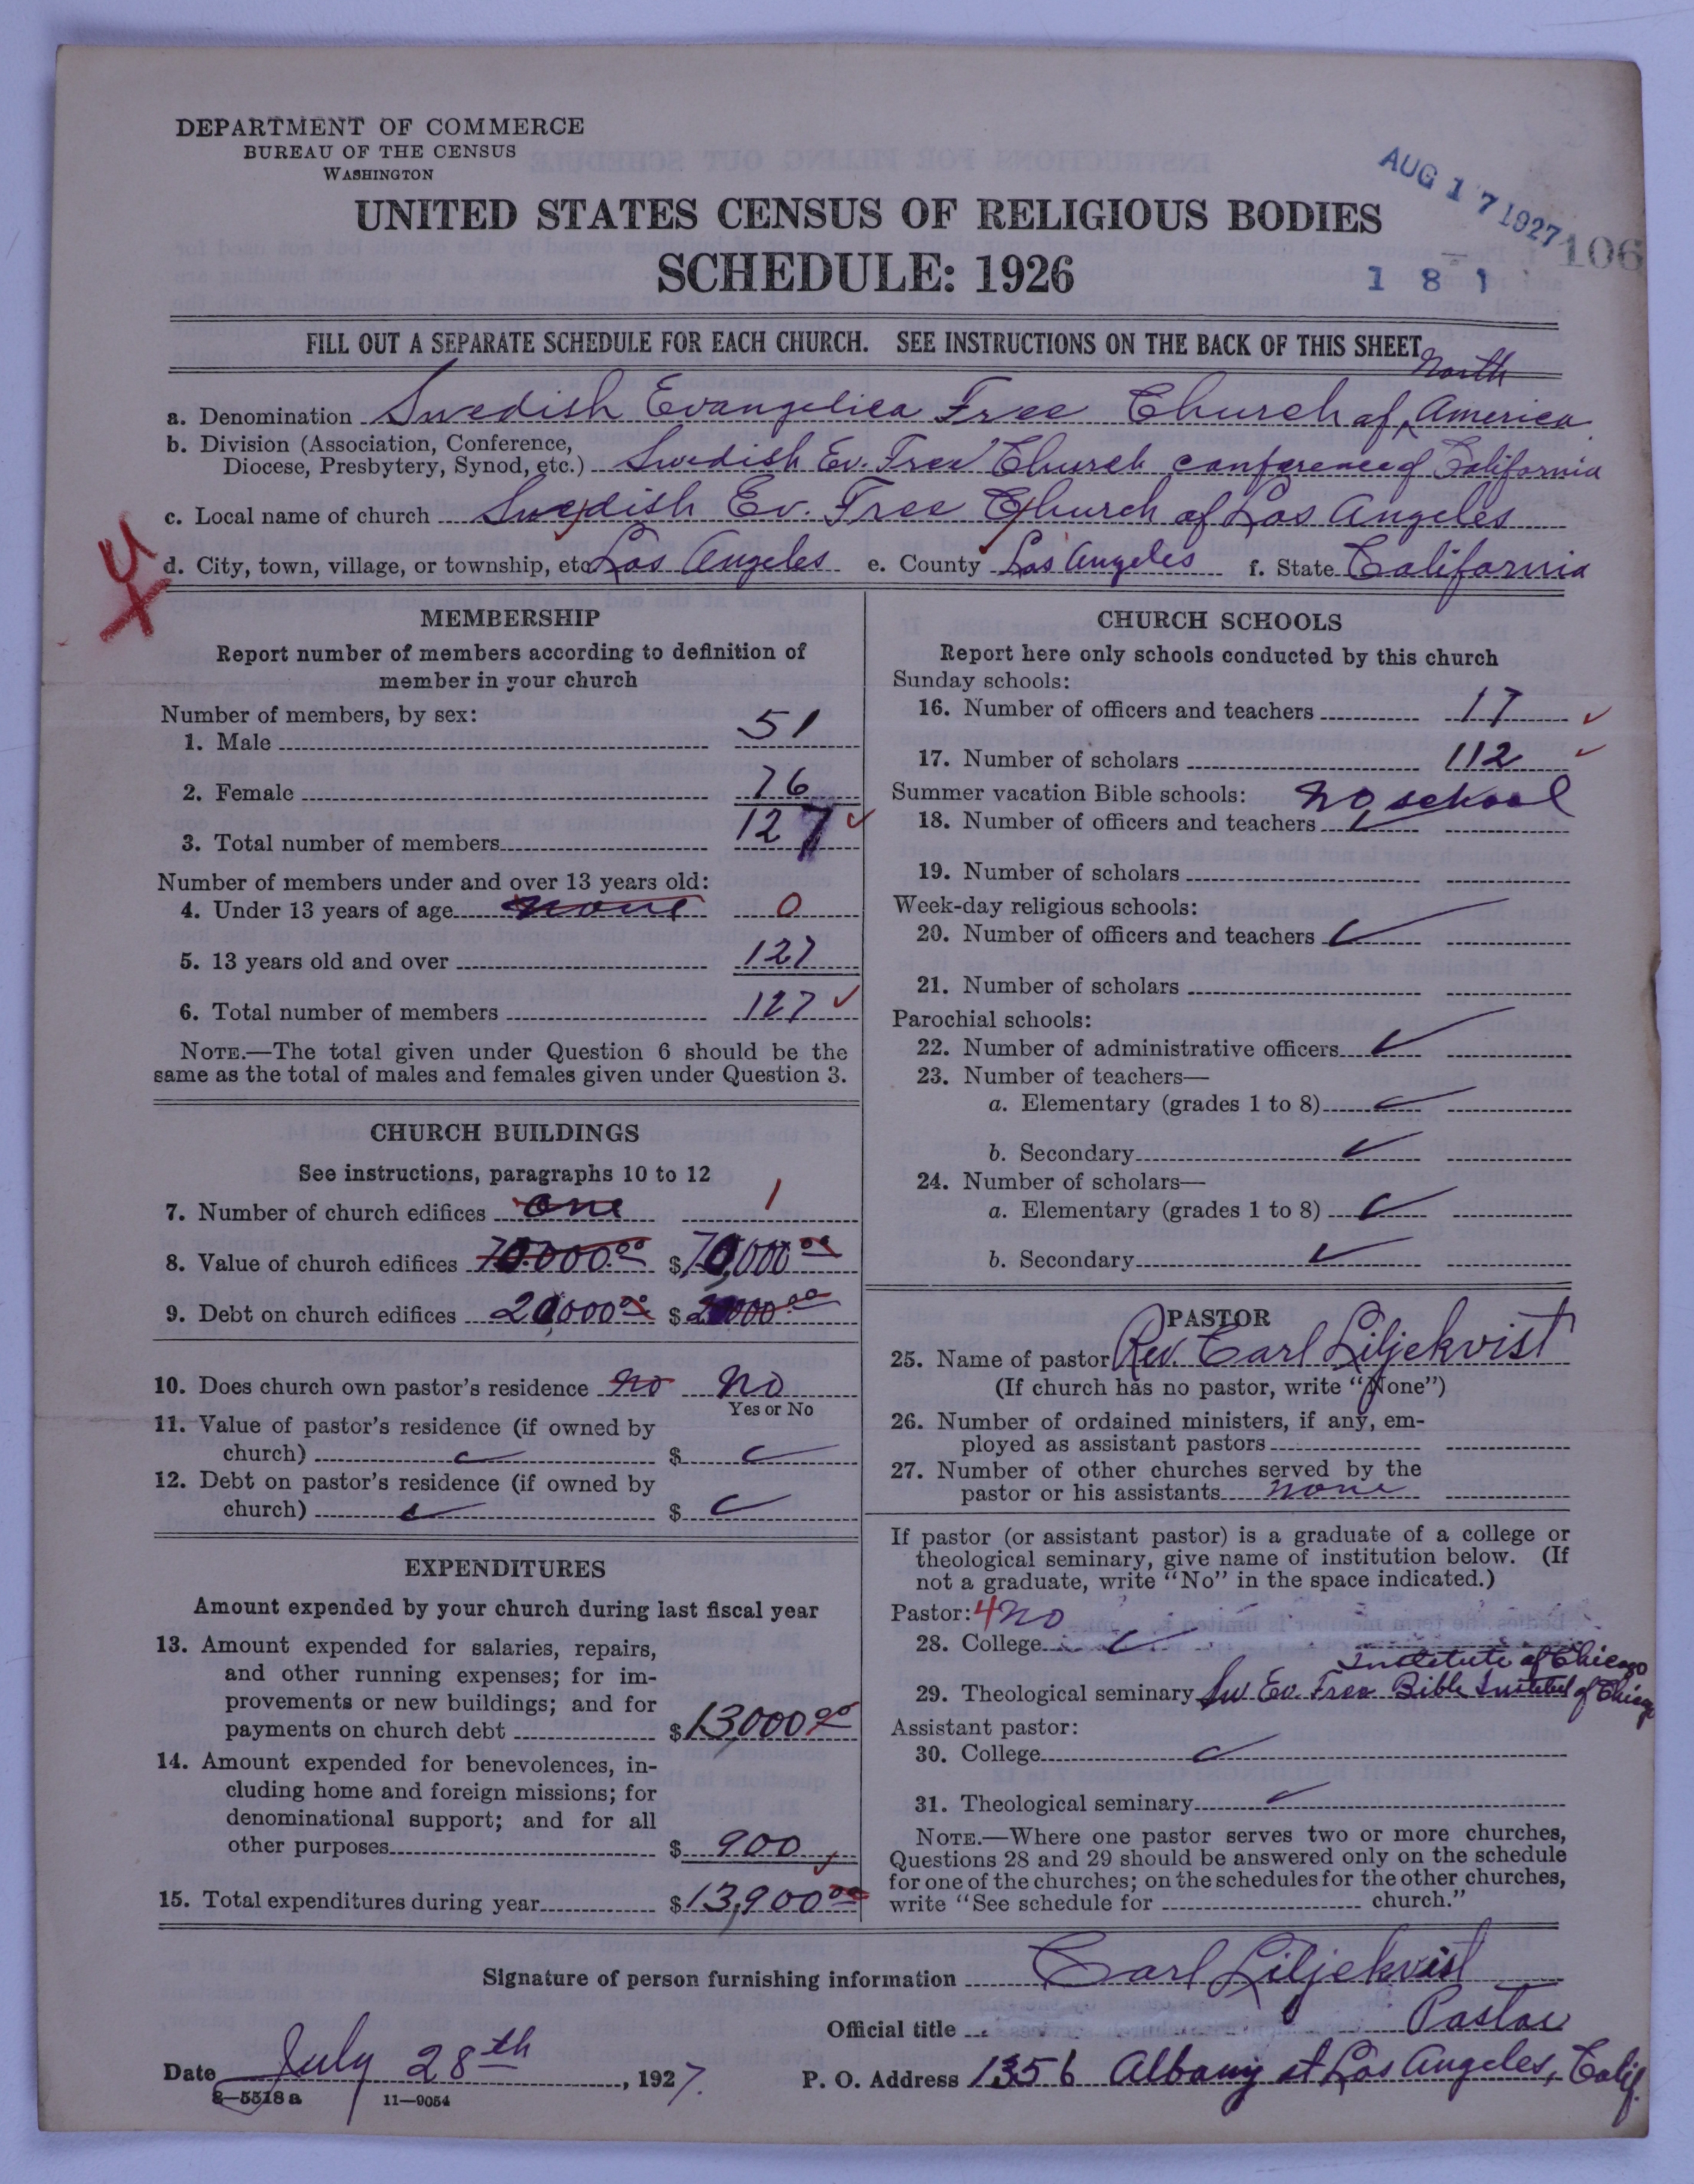 DEPARTMENT OF COMMERCE
BUREAU OF THE CENSUS
WASHINGTON
AUG 17 1927
106
UNITED STATES CENSUS OF RELIGIOUS BODIES
SCHEDULE: 1926
181
FILL OUT A SEPARATE SCHEDULE FOR EACH CHURCH. SEE INSTRUCTIONS ON THE BACK OF THIS SHEET
North
a. Denomination Swedish Evangelica Free Church of America
b. Division (Association, Conference,
Diocese, Presbytery, Synod, etc.) Swedish Ev. Free Church conference of California
c. Local name of church Swedish Ev. Free Church of Los Angeles
d. City, town, village, or township, etc Los Angeles e. County Los Angeles f. State California
MEMBERSHIP
Report number of members according to definition of
member in your church
Number of members, by sex:
1. Male 51
2. Female 76
3. Total number of members 127
Number of members under and over 13 years old:
4. Under 13 years of age none 0
5. 13 years old and over 127
6. Total number of members 127
NOTE.—The total given under Question 6 should be the
same as the total of males and females given under Question 3.
CHURCH BUILDINGS
See instructions, paragraphs 10 to 12
7. Number of church edifices one 1
8. Value of church edifices 70.000.00 $70,000.00
9. Debt on church edifices 20,000.00 $20000.00
10. Does church own pastor's residence no no
Yes or No
11. Value of pastor's residence (if owned by
church) $
12. Debt on pastor's residence (if owned by
church) $
EXPENDITURES
Amount expended by your church during last fiscal year
13. Amount expended for salaries, repairs,
and other running expenses; for im-
provements or new buildings; and for
payments on church debt $13,000.00
14. Amount expended for benevolences, in-
cluding home and foreign missions; for
denominational support; and for all
other purposes $ 900
15. Total expenditures during year $13,900.00
CHURCH SCHOOLS
Report here only schools conducted by this church
Sunday schools:
16. Number of officers and teachers 17
17. Number of scholars 112
Summer vacation Bible schools: no school
18. Number of officers and teachers
19. Number of scholars
Week-day religious schools:
20. Number of officers and teachers
21. Number of scholars
Parochial schools:
22. Number of administrative officers
23. Number of teachers—
a. Elementary (grades 1 to 8)
b. Secondary
24. Number of scholars—
a. Elementary (grades 1 to 8)
b. Secondary
PASTOR
25. Name of pastor Rev. Carl Liljekvist
(If church has no pastor, write "None")
26. Number of ordained ministers, if any, em-
ployed as assistant pastors
27. Number of other churches served by the
pastor or his assistants none
If pastor (or assistant pastor) is a graduate of a college or
theological seminary, give name of institution below. (If
not a graduate, write "No" in the space indicated.)
Pastor: 4 no
28. College
Institute of Chicago
29. Theological seminary Sw Ev. Free Bible Institut of Chicago
Assistant pastor:
30. College
31. Theological seminary
NOTE.—Where one pastor serves two or more churches,
Questions 28 and 29 should be answered only on the schedule
for one of the churches; on the schedules for the other churches,
write "See schedule for church."
Signature of person furnishing information Carl Liljekvist
Official title Pastor
Date July 28th, 1927. P. O. Address 1356 Albany st Los Angeles, Calif.
8—5518a 11—9054